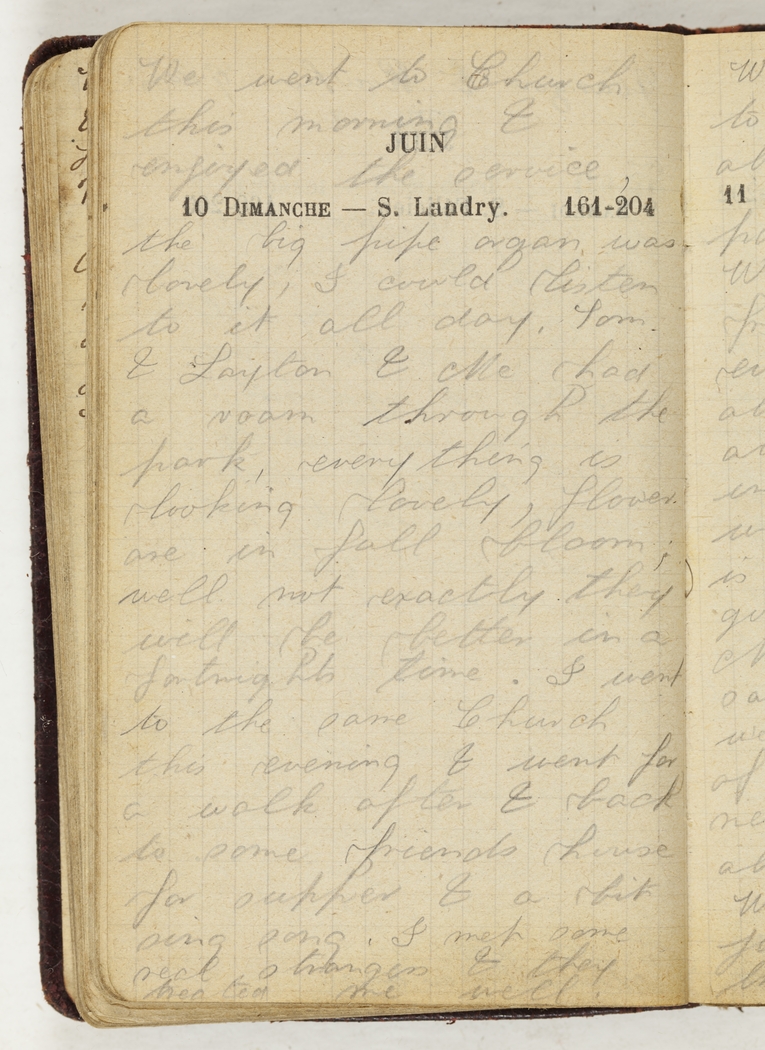 We went to Church
this morning &
JUIN
enjoyed the service,
10 DIMANCHE — S. Landry. 161-204
the big pipe organ was
lovely, I could listen
to it all day. Tom
& Layton & Me had
a roam through the
park, every thing is
looking lovely, flower
are in full bloom,
well not exactly they
will be better in a
fortnights time. I went
to the same Church
this evening & went for
a walk after & back
to some friends house
for supper & a bit
sing song. I met some
real strangers & they
treated me well.
11